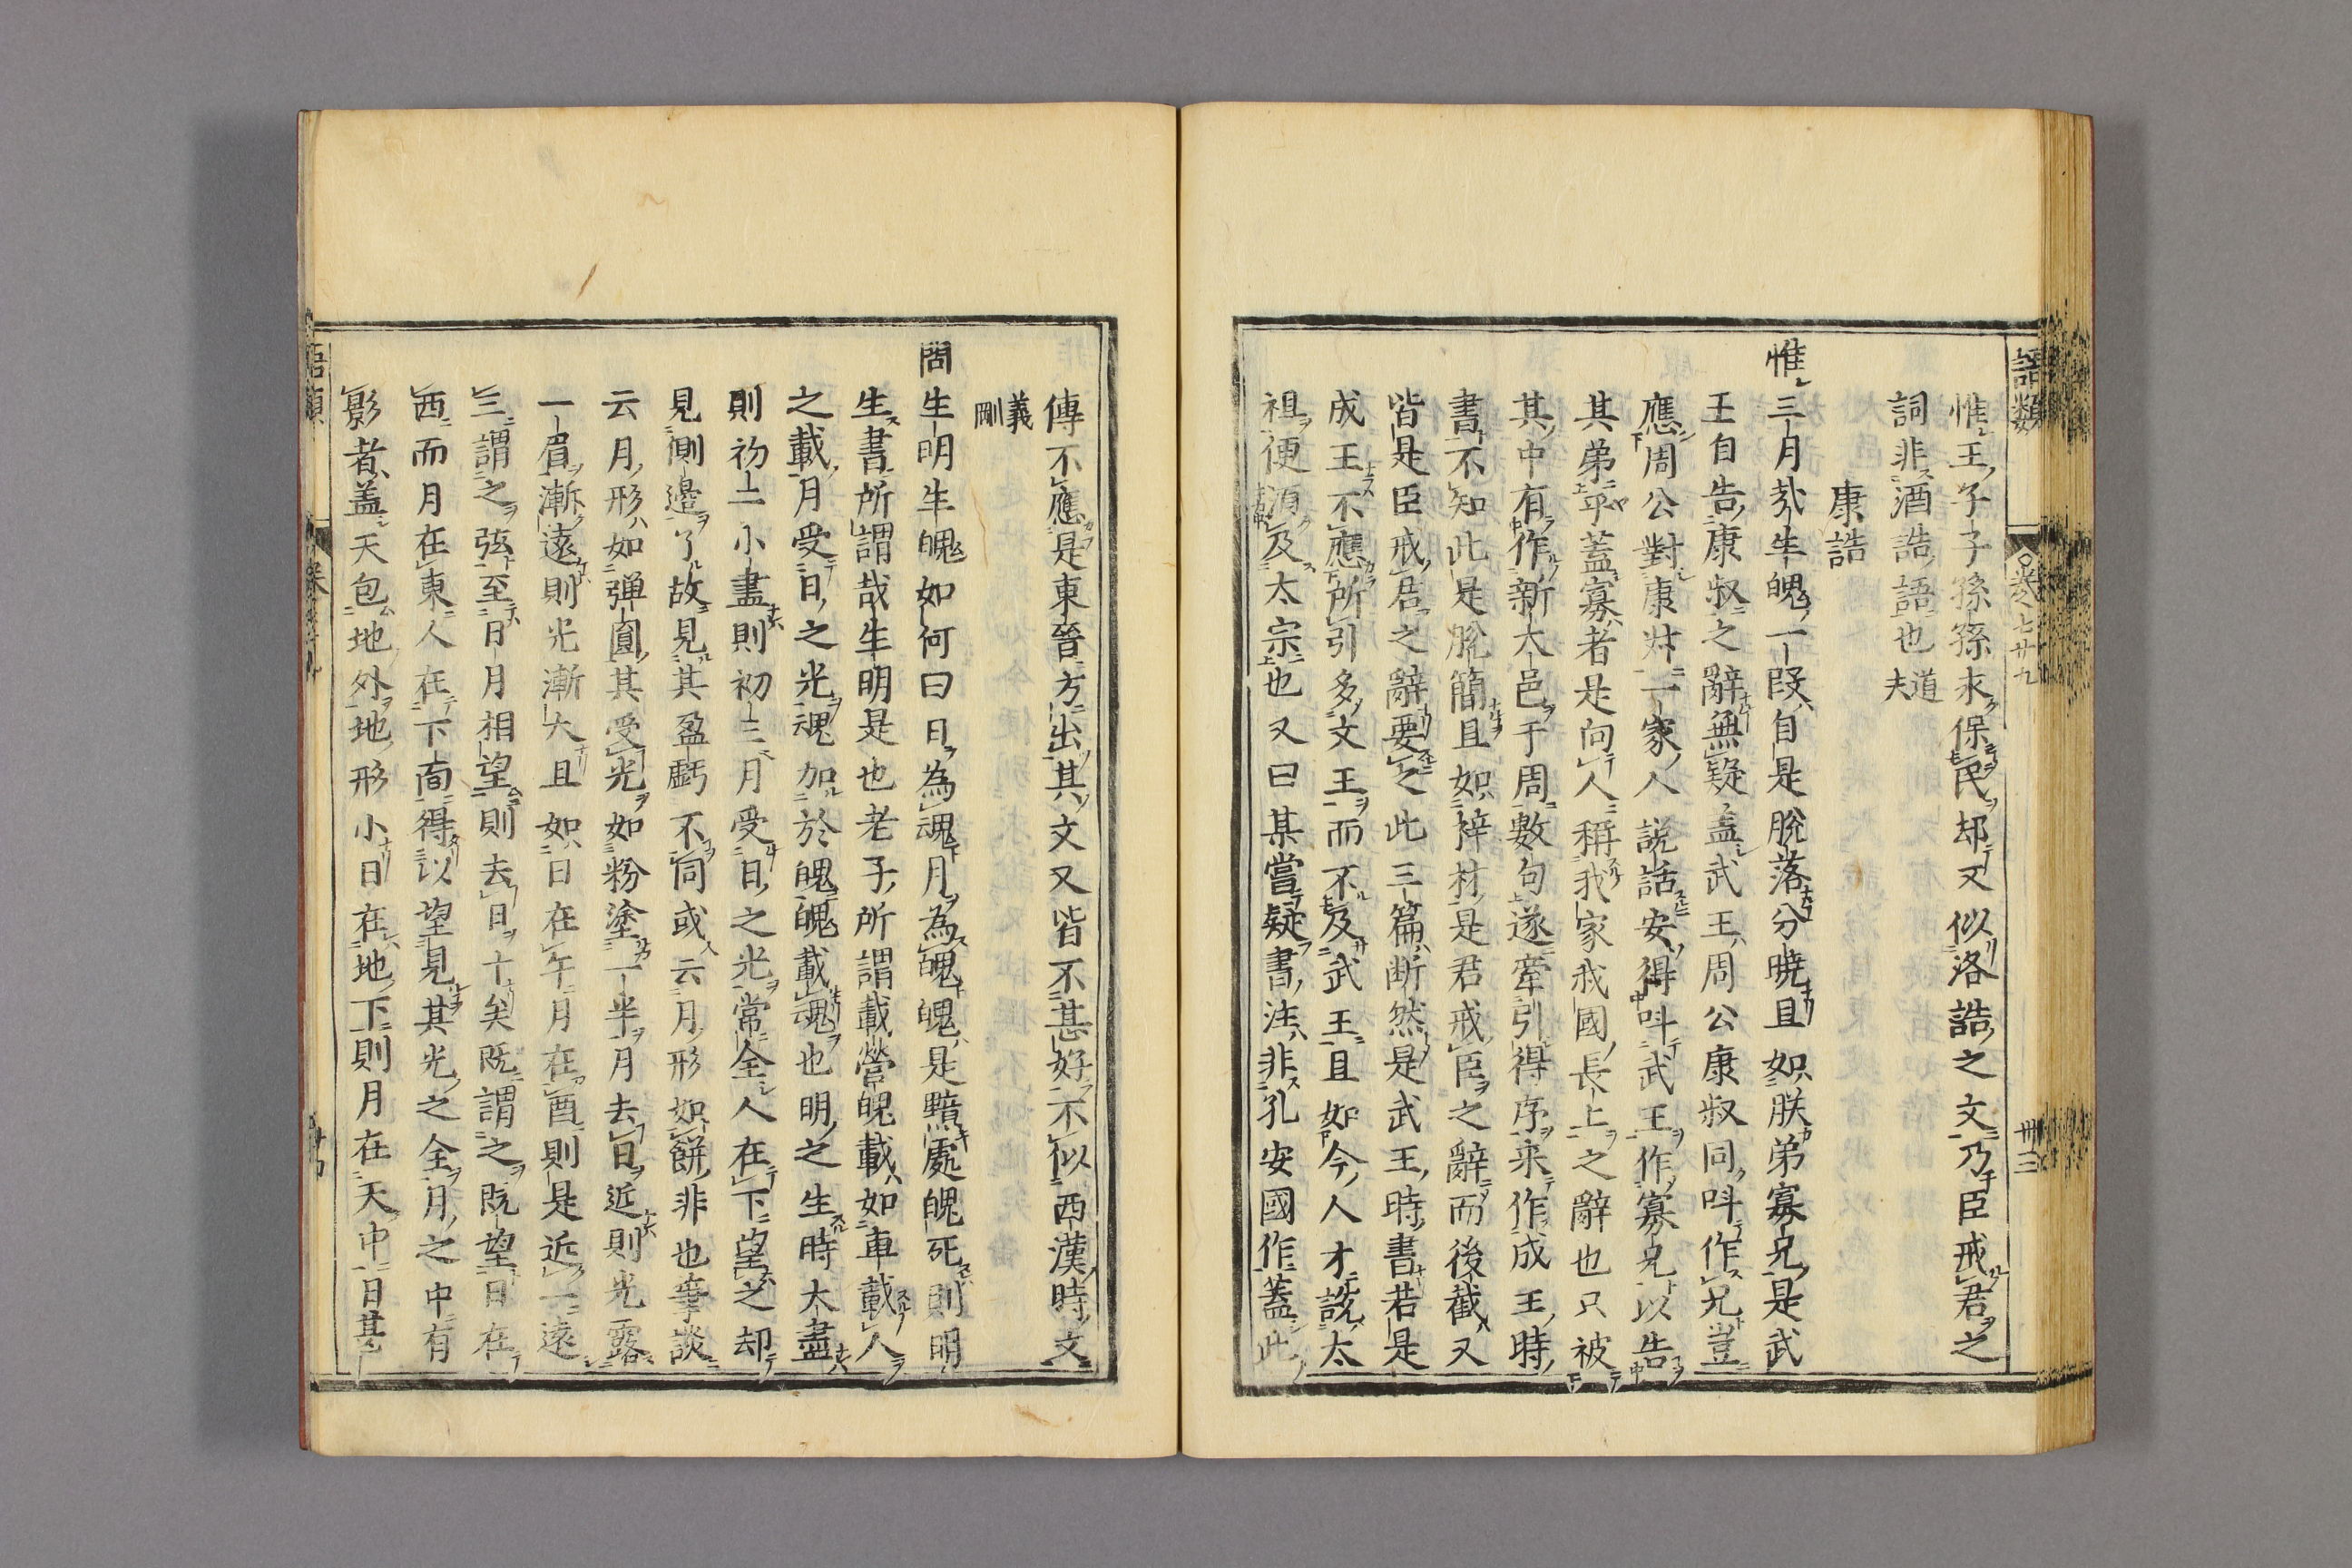 語類
卷七十九
卅三
惟王子子孫孫永保民却又似洛誥之文乃臣戒君之
詞非酒誥語也道夫
康誥
惟三月哉生魄一段自是脫落分曉且如朕弟寡兄是武
王自告康叔之辭無疑盖武王周公康叔同呌作兄豈
應周公對康叔一家人說話安得呌武王作寡兄以告
其弟乎蓋寡者是向人稱我家我國長上之辭也只被
其中有作新大邑于周數句遂牽引得序來作成王時
書不知此是脫簡且如梓材是君戒臣之辭而後截又
皆是臣戒君之辭要之此三篇断然是武王時書若是
成王不應所引多文王而不及武王且如今人才說太
祖便須及太宗也又曰某嘗疑書注非孔安國作蓋此
傳不應是東晉方出其文又皆不甚好不似西漢時文
義剛
問生明生魄如何曰日為魂月為魄魄是黯處魄死則明
生書所謂哉生明是也老子所謂載營魄載如車載人
之載月受日之光魂加於魄魄載魂也明之生時大盡
則初二小盡則初三月受日之光常全人在下望之却
見側邊了故見其盈虧不同或云月形如餅非也筆談
云月形如弾圓其受光如粉塗一半月去日近則光露
一眉漸遠則光漸大且如日在午月在酉則是近一遠
三謂之弦至日月相望則去日十矣既謂之既望日在
西而月在東人在下面得以望見其光之全月之中有
影者盖天包地外地形小日在地下則月在天中日甚